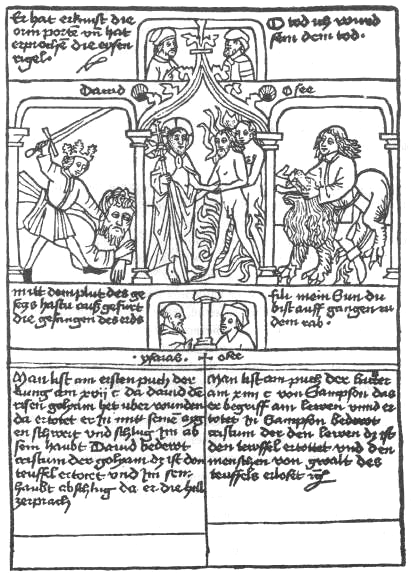 Er hat erknist die
orin porte vn̄ hat
erprochē die eysen
rigel.
O tod ich würd
sein dem tod.
Dauid
Osee
mitt dem plut des ge
secz hastu auß gefurt
die gefangen des
fili mein Sun du
bist auff gangen zu
dem rab.
ysaias
osee
Man list am ersten puch der
kung am xvij c da dauid dē
risen golyam het uber wunden
da ertotet er In mitt seinē aygē
schwert und schlug Im ab
sein haubt Dauid bedewt
cristum der golyam dz ist den
teuffel ertotet und Im sein
haubt abschlug da er die hell
zerprach
Man list am puch der Richter
am xiiij c von Sampson das
er begriff am lewen unnd er
totet in Sampson bedewt
cristum der den lewen dz ist
den teuffel ertottet und den
menschen von gwalt des
teuffels erlost